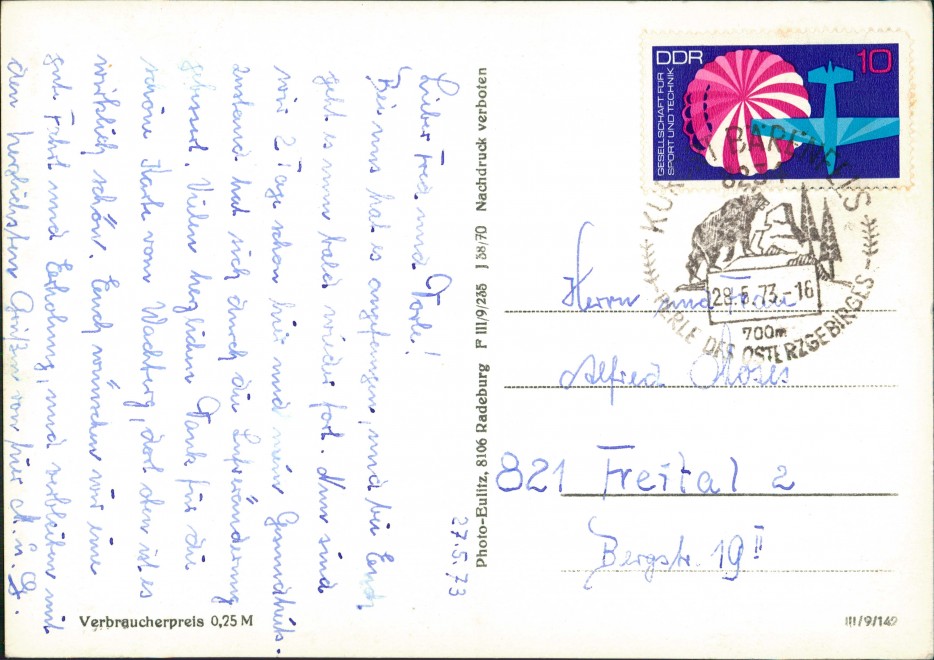 27.5.73
Lieber Fred und Dorle!
Bei uns hat es angefangen, und bei Euch
geht es nun bald wieder fort. Nun sind
wir 2 Tage schon hier und mein Gemüths-
zustand hat sich durch die Luftveränderung
gebessert. Vielen herzlichen Dank für die
schöne Karte vom Wachberg, dort oben ist es
wirklich schön. Euch wünschen wir eine
gute Fahrt und Erholung, und verbleiben mit
den herzlichsten Grüßen von hier
Verbraucherpreis 0,25 M
Photo-Eulitz, 8106 Radeburg F III/9/235 J 38/70 Nachdruck verboten
DDR
10
GESELLSCHAFT FÜR
SPORT UND TECHNIK
KURORT BÄRENFELS
8234
29.5.73.-16
700m
PERLE DES OSTERZGEBIRGES
Herrn und Frau
Alfred
821 Freital 2
Bergstr. 19 II
III/9/149